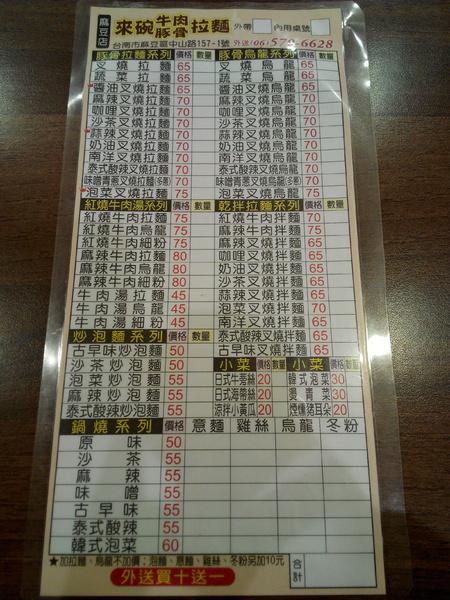 麻豆店 來碗牛肉豚骨拉麵 外帶 內用桌號
台南市麻豆區中山路157-1號 外送(06)572-6628
豚骨拉麵系列 價格 數量 豚骨烏龍系列 價格 數量
叉燒拉麵 65 叉燒烏龍 65
蔬菜拉麵 65 蔬菜烏龍 65
醬油叉燒拉麵 65 醬油叉燒烏龍 65
麻辣叉燒拉麵 70 麻辣叉燒烏龍 70
咖哩叉燒拉麵 70 咖哩叉燒烏龍 70
沙茶叉燒拉麵 70 沙茶叉燒烏龍 70
蒜辣叉燒拉麵 70 蒜辣叉燒烏龍 70
奶油叉燒拉麵 70 奶油叉燒烏龍 70
南洋叉燒拉麵 70 南洋叉燒烏龍 70
泰式酸辣叉燒拉麵 70 泰式酸辣叉燒烏龍 70
味噌青蔥叉燒拉麵(多蔥) 70 味噌青蔥叉燒烏龍(多蔥) 70
泡菜叉燒拉麵 75 泡菜叉燒烏龍 75
紅燒牛肉湯系列 價格 數量 乾拌拉麵系列 價格 數量
紅燒牛肉拉麵 75 紅燒牛肉拌麵 70
紅燒牛肉烏龍 75 麻辣牛肉拌麵 75
紅燒牛肉細粉 75 麻辣叉燒拌麵 65
麻辣牛肉拉麵 80 咖哩叉燒拌麵 65
麻辣牛肉烏龍 80 奶油叉燒拌麵 65
麻辣牛肉細粉 80 沙茶叉燒拌麵 65
牛肉湯拉麵 45 蒜辣叉燒拌麵 65
牛肉湯烏龍 45 泡菜叉燒拌麵 70
牛肉湯細粉 45 南洋叉燒拌麵 65
炒泡麵系列 價格 數量 泰式酸辣叉燒拌麵 65
古早味炒泡麵 50 古早味叉燒拌麵 65
沙茶炒泡麵 50 小菜 價格 數量 小菜 價格 數量
泡菜炒泡麵 55 日式牛蒡絲 20 韓式泡菜 30
麻辣炒泡麵 55 日式海帶絲 20 燙青菜 30
泰式酸辣炒泡麵 55 涼拌小黃瓜 20 煙燻豬耳朵 20
鍋燒系列 價格 意麵 雞絲 烏龍 冬粉
原味 50
沙茶 55
麻辣 55
味噌 55
古早味 55
泰式酸辣 55
韓式泡菜 60
★加拉麵、烏龍不加價；泡麵、意麵、雞絲、冬粉另加10元 合計
外送買十送一